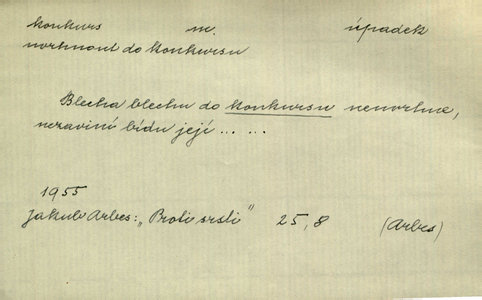 konkurs m. úpadek
uvrhnout do konkursu
Blecha blechu do konkursu neuvrhne,
nezaviní bídu její ... ...
1955
Jakub Arbes: „Proti srsti" 25,8 (Arbes)